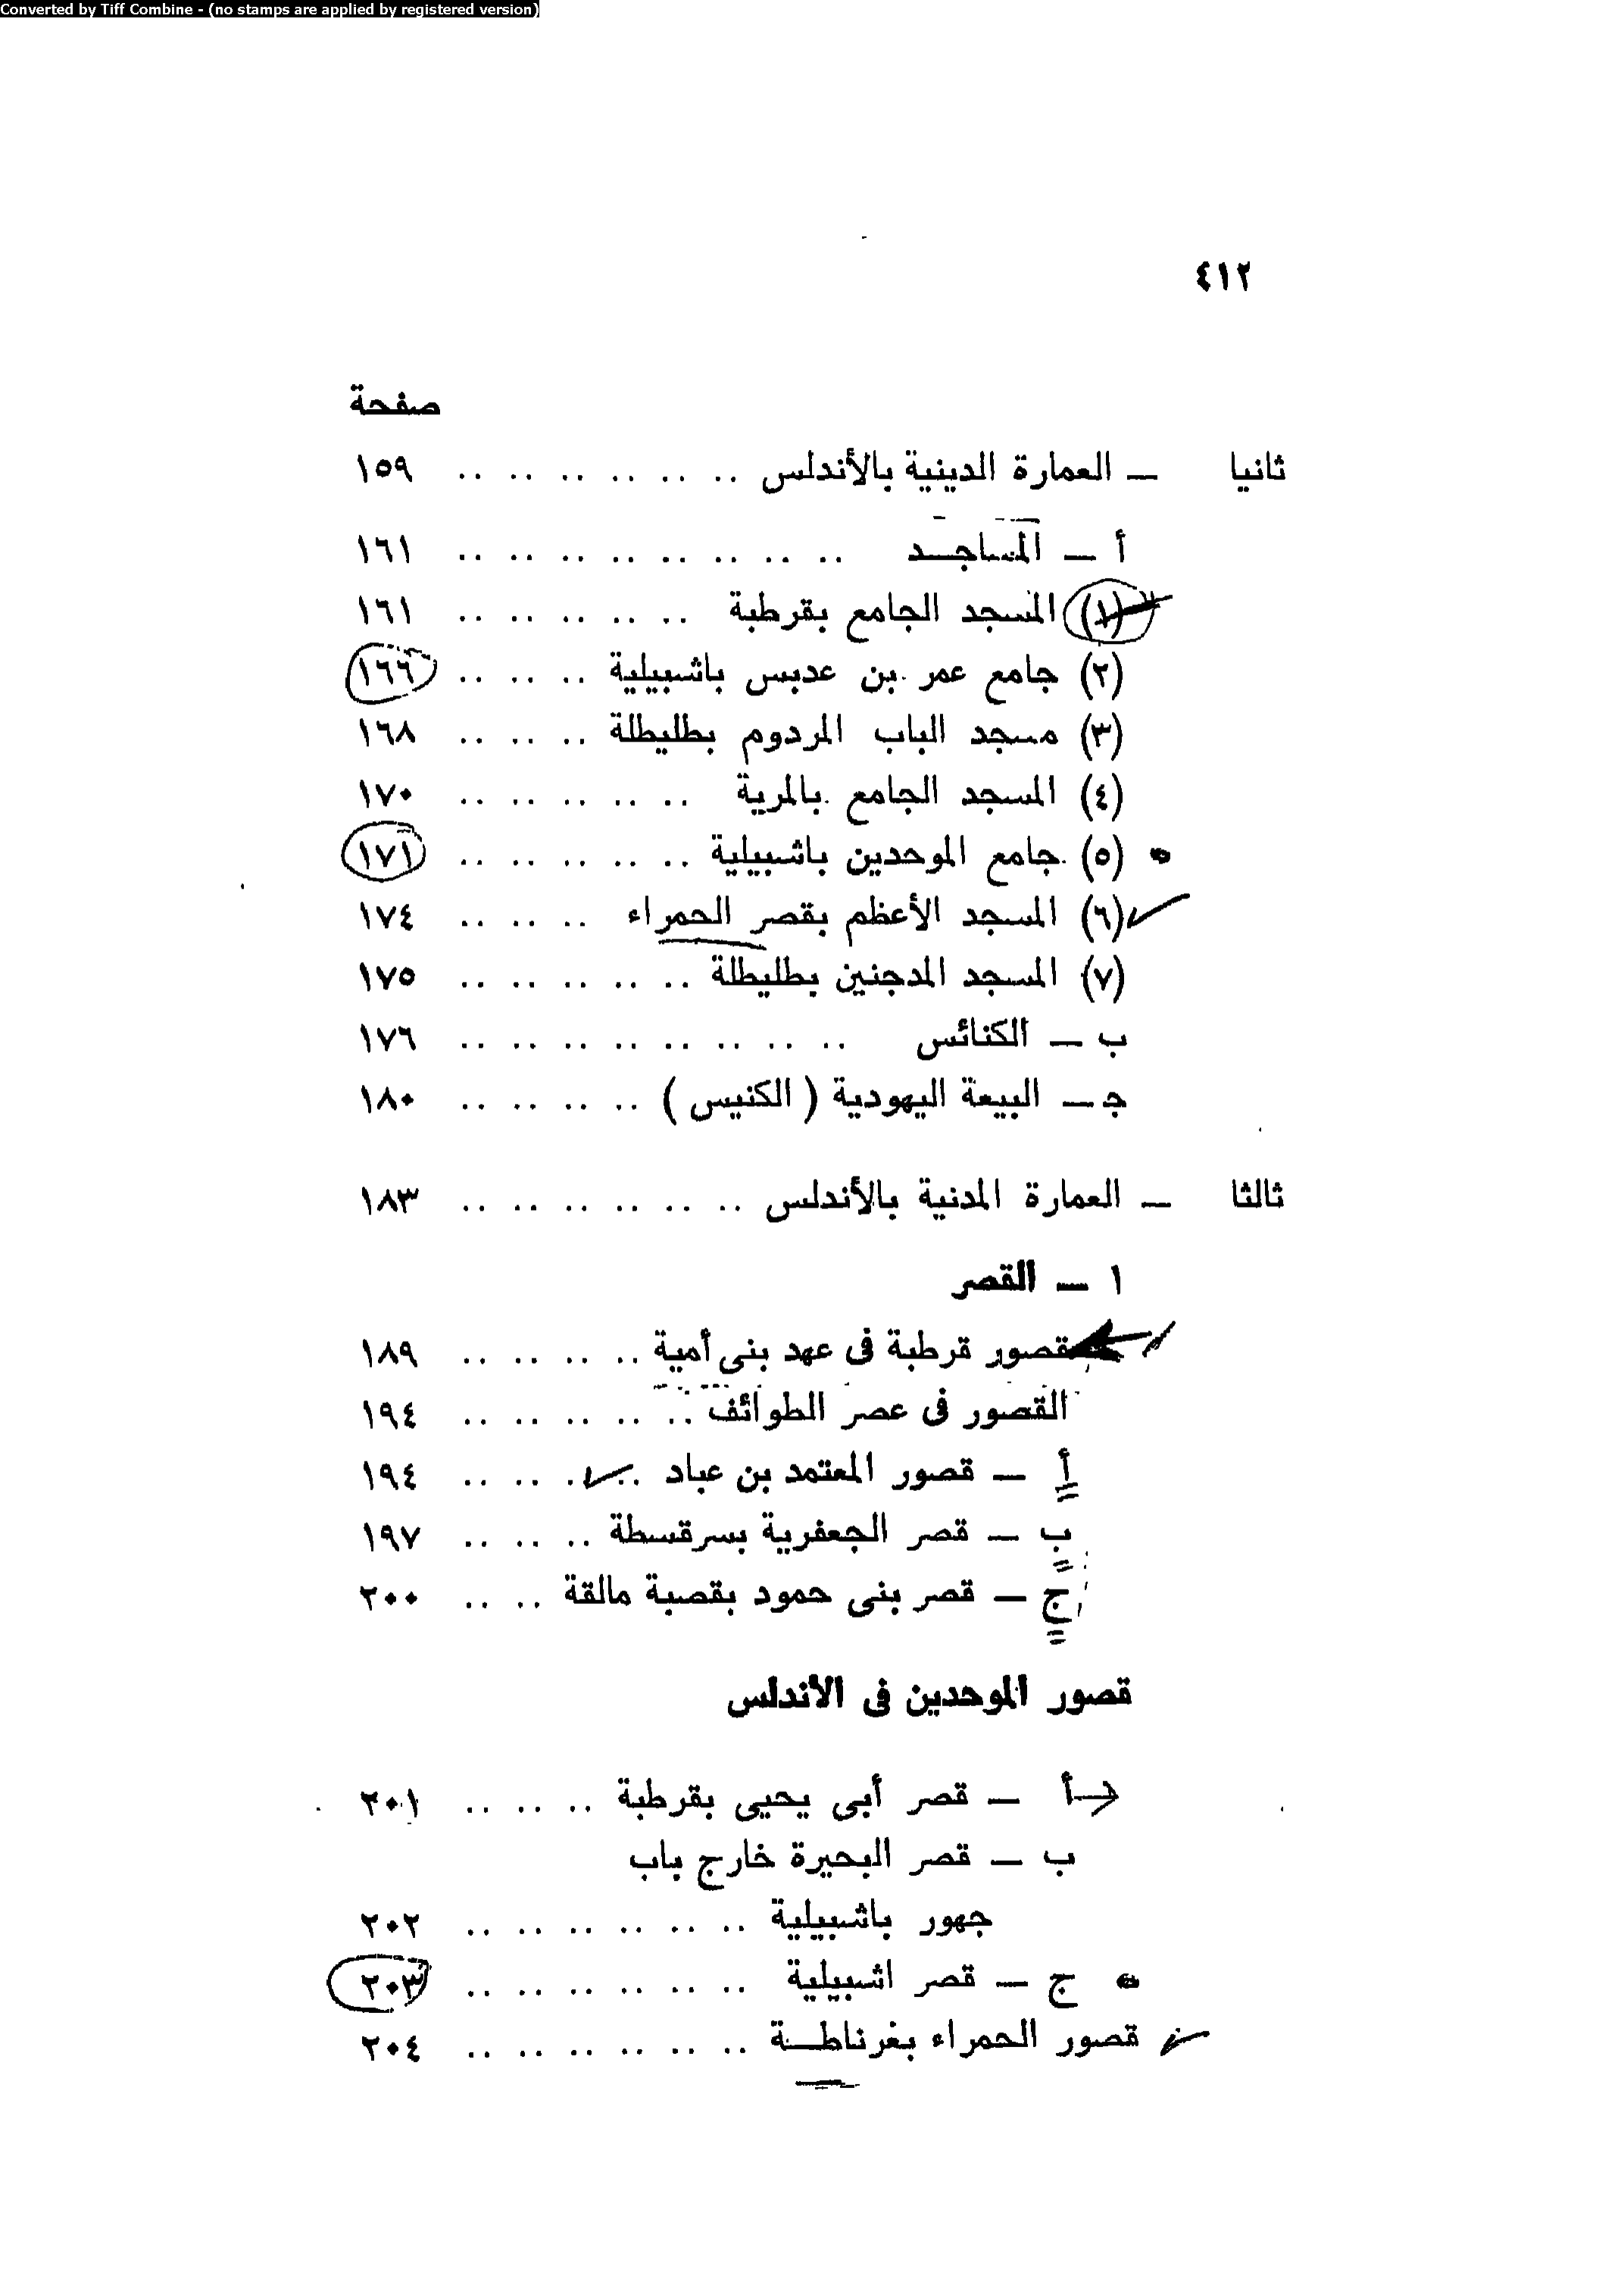 Converted by Tiff Combine - (no stamps are applied by registered version)
٤١٢
صفحة
ثانيا — العمارة الدينية بالأندلس .. .. .. .. .. .. ١٥٩
أ — المساجد .. .. .. .. .. .. .. .. ١٦١
(١) المسجد الجامع بقرطبة .. .. .. .. .. ١٦١
(٢) جامع عمر بن عدبس باشبيلية .. .. .. ١٦٦
(٣) مسجد الباب المردوم بطليطلة .. .. .. ١٦٨
(٤) المسجد الجامع بالمرية .. .. .. .. .. ١٧٠
(٥) جامع الموحدين باشبيلية .. .. .. .. .. ١٧١
(٦) المسجد الأعظم بقصر الحمراء .. .. .. ١٧٤
(٧) المسجد المدجنين بطليطلة .. .. .. .. .. ١٧٥
ب — الكنائس .. .. .. .. .. .. .. .. ١٧٦
جـ — البيعة اليهودية ( الكنيس ) .. .. .. .. ١٨٠
ثالثا — العمارة المدنية بالأندلس .. .. .. .. .. .. ١٨٣
١ — القصر
قصور قرطبة فى عهد بنى أمية .. .. .. .. ١٨٩
القصور فى عصر الطوائف .. .. .. .. .. ١٩٤
أ — قصور المعتمد بن عباد .. .. .. .. ١٩٤
ب — قصر الجعفرية بسرقسطة .. .. .. ١٩٧
ج — قصر بنى حمود بقصبة مالقة .. .. ٢٠٠
قصور الموحدين فى الأندلس
أ — قصر أبى يحيى بقرطبة .. .. .. ٢٠١
ب — قصر البحيرة خارج باب
جهور باشبيلية .. .. .. .. .. .. ٢٠٢
ج — قصر اشبيلية .. .. .. .. .. .. ٢٠٣
قصور الحمراء بغرناطة .. .. .. .. .. .. ٢٠٤